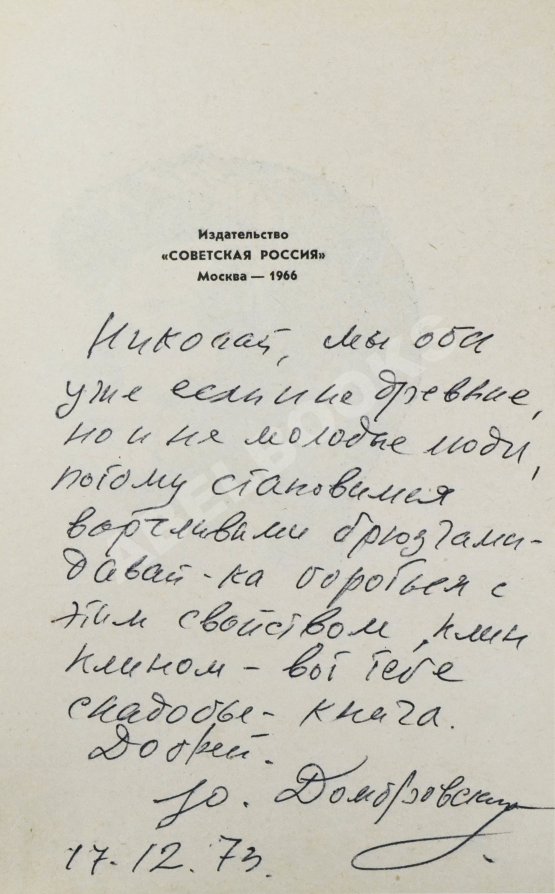 Издательство
«СОВЕТСКАЯ РОССИЯ»
Москва — 1966
Николай, мы оба
уже если и не древние,
но и не молодые люди,
потому становимся
ворчливыми брюзгами -
давай-ка бороться с
этим свойством, клин
клином - вот тебе
снадобье - книга.
Добрей.
Ю. Домбровский
17.12.73
ABEL BOOKS